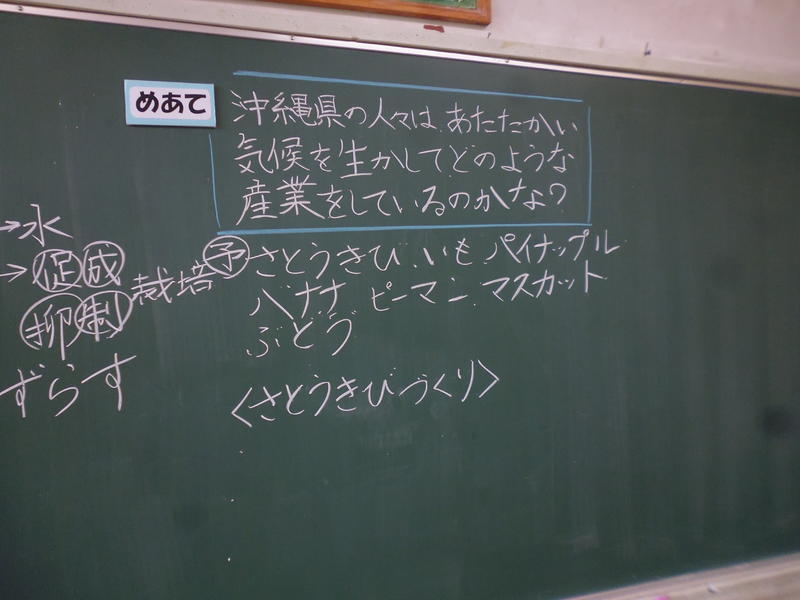 めあて
沖縄県の人々は、あたたかい
気候を生かしてどのような
産業をしているのかな?
→水
→促成
抑制
栽培
ずらす
予 さとうきび、いも パイナップル
バナナ ピーマン、マスカット
ぶどう
〈さとうきびづくり〉